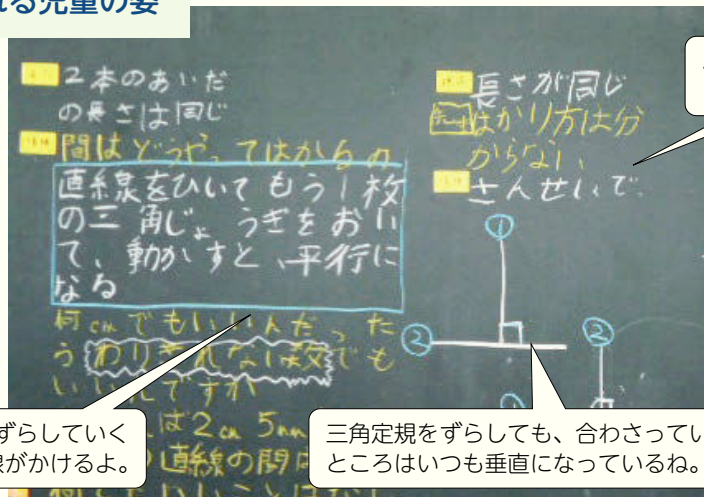 れる児童の姿
2本のあいだ
の長さは同じ
間はどうやってはかるの
直線をひいてもう1枚
の三角じょうぎをおい
て、動かすと、平行に
なる
何cmでもいいんだったら
うわりきれない数でも
いいんですか
ば2cm 5mm
直線の間は
長さが同じ
はかり方は分
からない
さんせいで
①
②
②
ずらしていく
線がかけるよ。
三角定規をずらしても、合わさってい
ところはいつも垂直になっているね。